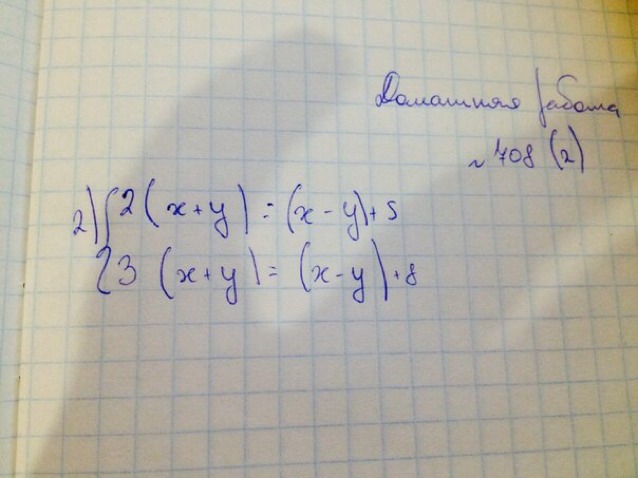 Домашняя работа
~ 708 (2)
2) { 2 ( x + y ) = (x - y) + 5
3 ( x + y ) = (x - y) + 8